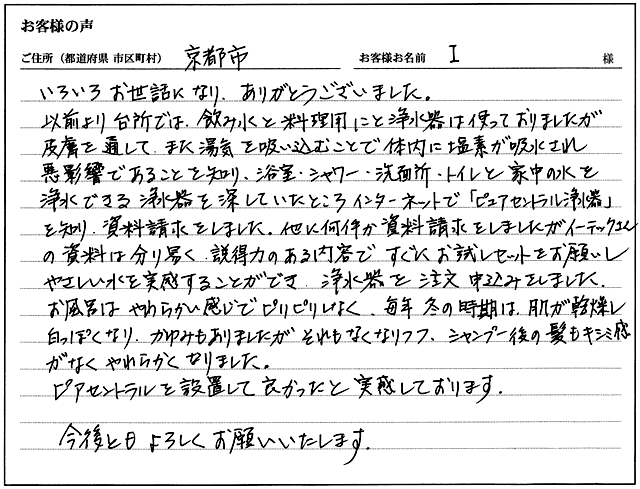 お客様の声
ご住所（都道府県 市区町村） 京都市 お客様お名前 I 様
いろいろお世話になり、ありがとうございました。
以前より台所では、飲み水と料理用にと浄水器は使っておりましたが
皮膚を通して、また湯気を吸い込むことで体内に塩素が吸水され
悪影響であることを知り、浴室・シャワー・洗面所・トイレと家中の水を
浄水できる浄水器を探していたところインターネットで「ピュアセントラル浄水器」
を知り、資料請求をしました。他に何件か資料請求をしましたがイーテックさん
の資料は分り易く、説得力のある内容で すぐにお試しセットをお願いし
やさしい水を実感することができ、浄水器を注文申込みをしました。
お風呂はやわらかい感じでピリピリしなく、毎年冬の時期は、肌が乾燥し
白っぽくなり、かゆみもありましたがそれもなくなりつつ、シャンプー後の髪もキシミ感
がなくやわらかくなりました。
ピアセントラルを設置して良かったと実感しております。
今後とも よろしくお願いいたします。